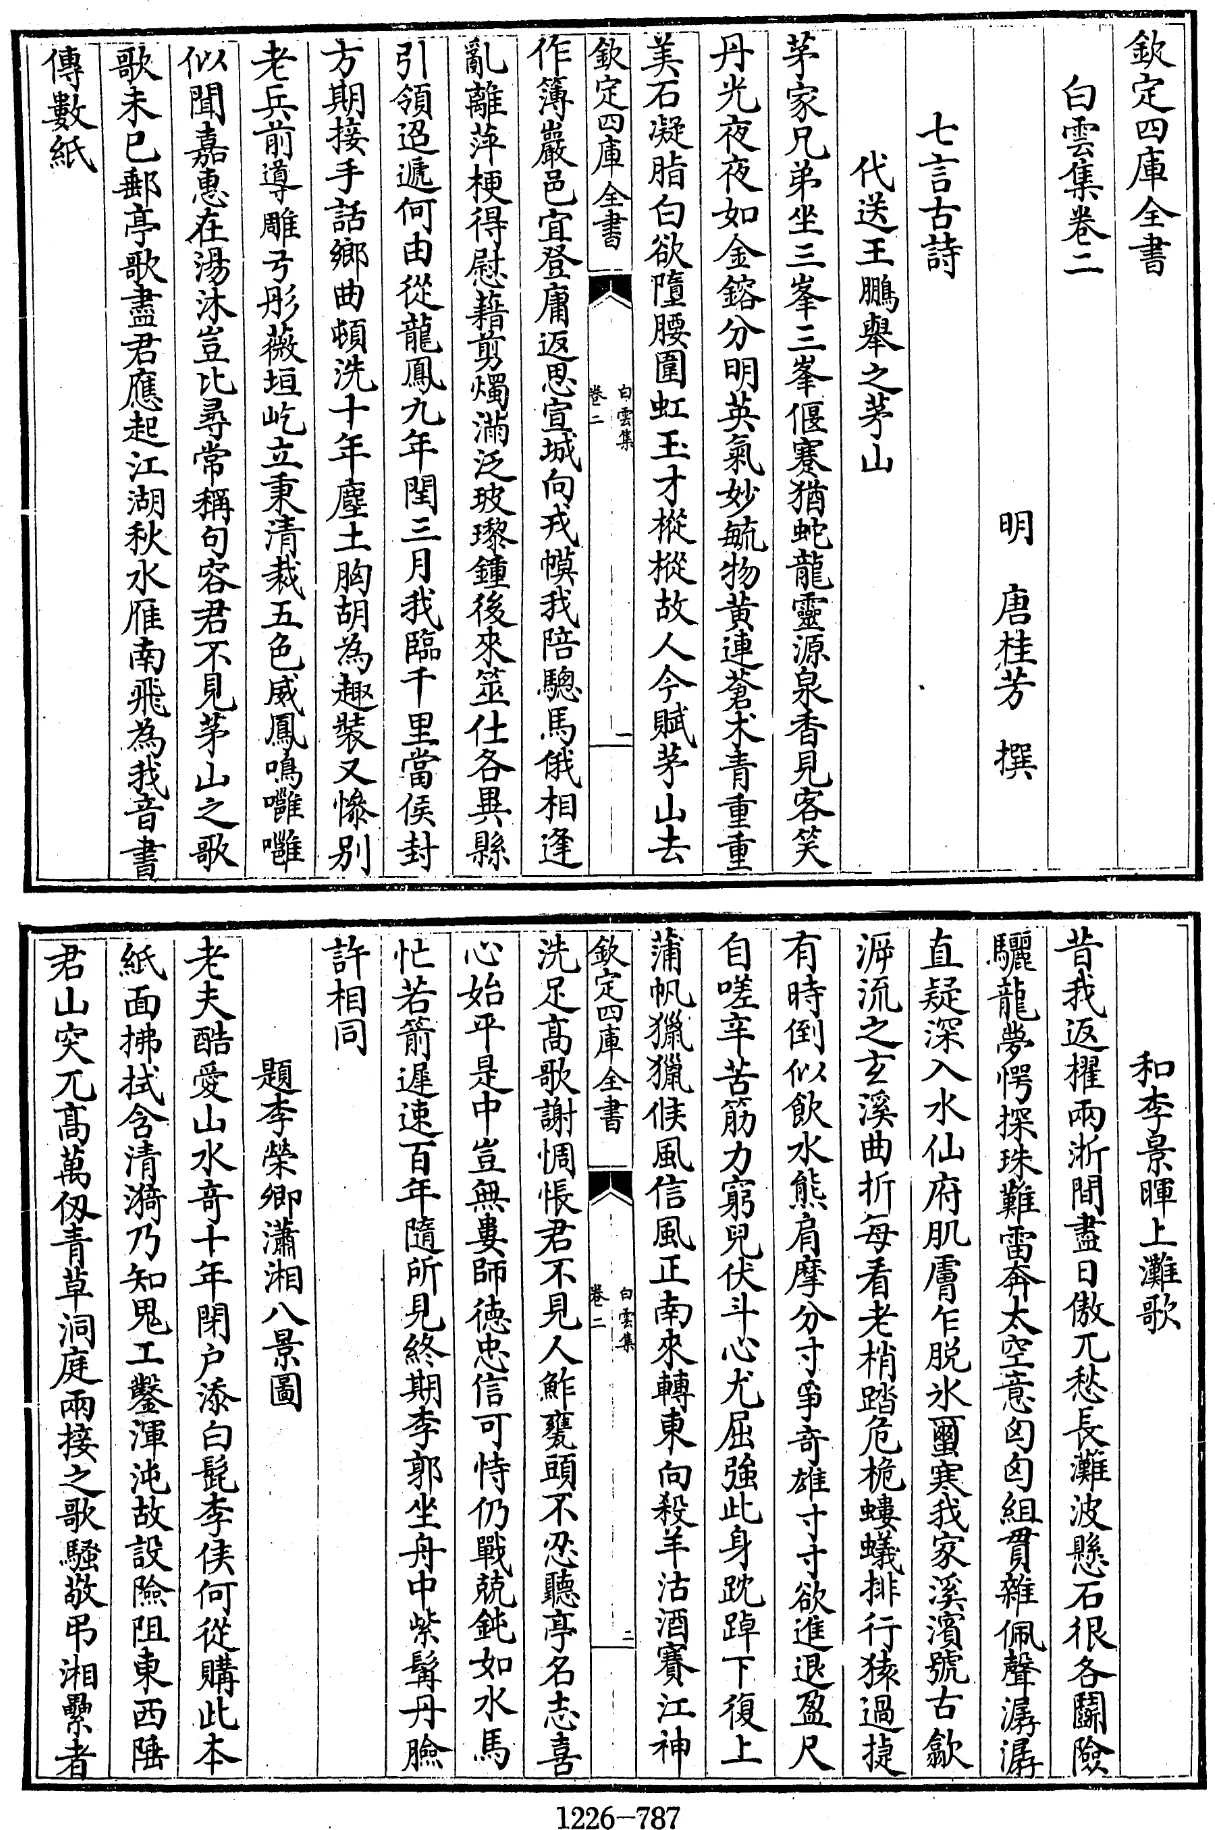 欽定四庫全書
白雲集卷二
明　唐桂芳　撰
七言古詩
代送王鵬舉之茅山
茅家兄弟坐三峯三峯偃蹇猶蛇龍靈源泉香見客笑
丹光夜夜如金鎔分明英氣妙毓物黄連蒼术青重重
美石凝脂白欲墮腰圍虹玉才樅樅故人今賦茅山去
欽定四庫全書
白雲集
卷二
一
作簿巖邑宜登庸返思宣城向戎幙我陪驄馬俄相逢
亂離萍梗得慰藉剪燭滿泛玻瓈鍾後來筮仕各異縣
引領迢遞何由從龍鳳九年閏三月我臨千里當侯封
方期接手話鄉曲頓洗十年塵土胸胡為趣裝又慘别
老兵前導雕弓彤薇垣屹立秉清裁五色威鳳鳴噰噰
似聞嘉惠在湯沐豈比尋常稱句容君不見茅山之歌
歌未已郵亭歌盡君應起江湖秋水雁南飛為我音書
傳數紙
和李景暉上灘歌
昔我返櫂兩浙間盡日傲兀愁長灘波懸石很各鬭險
驪龍夢愕探珠難雷奔太空意囪囪組貫雜佩聲潺潺
直疑深入水仙府肌膚乍脱氷蠒寒我家溪濱號古歙
泝流之玄溪曲折每看老梢踏危桅螻蟻排行猿過㨗
有時倒似飲水熊肩摩分寸爭奇雄寸寸欲進退盈尺
自嗟辛苦筋力窮兒伏斗心尤屈強此身跎踔下復上
蒲帆獵獵候風信風正南來轉東向殺羊沽酒賽江神
欽定四庫全書
白雲集
卷二
二
洗足高歌謝惆悵君不見人鮓甕頭不忍聽亭名志喜
心始平是中豈無婁師德忠信可恃仍戰兢鈍如水馬
忙若箭遲速百年隨所見終期李郭坐舟中紫髯丹臉
許相同
題李榮卿瀟湘八景圖
老夫酷愛山水奇十年閉户添白髭李侯何從購此本
紙面拂拭含清漪乃知鬼工鑿渾沌故設險阻東西陲
君山突兀高萬仭青草洞庭兩接之歌騷敬弔湘纍者
1226-787